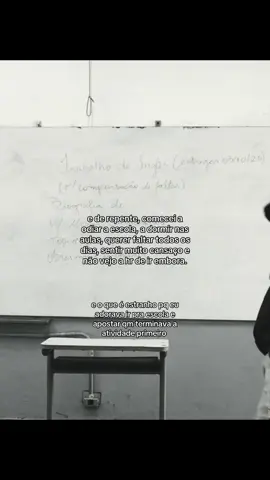 Trabalho de
(p/ compensação de faltas)
e de repente, comecei a
odiar a escola, a dormir nas
aulas, querer faltar todos os
dias, sentir muito cansaço e
não vejo a hr de ir embora.
e o que é estranho pq eu
adorava ir pra escola e
apostar qm terminava a
atividade primeiro